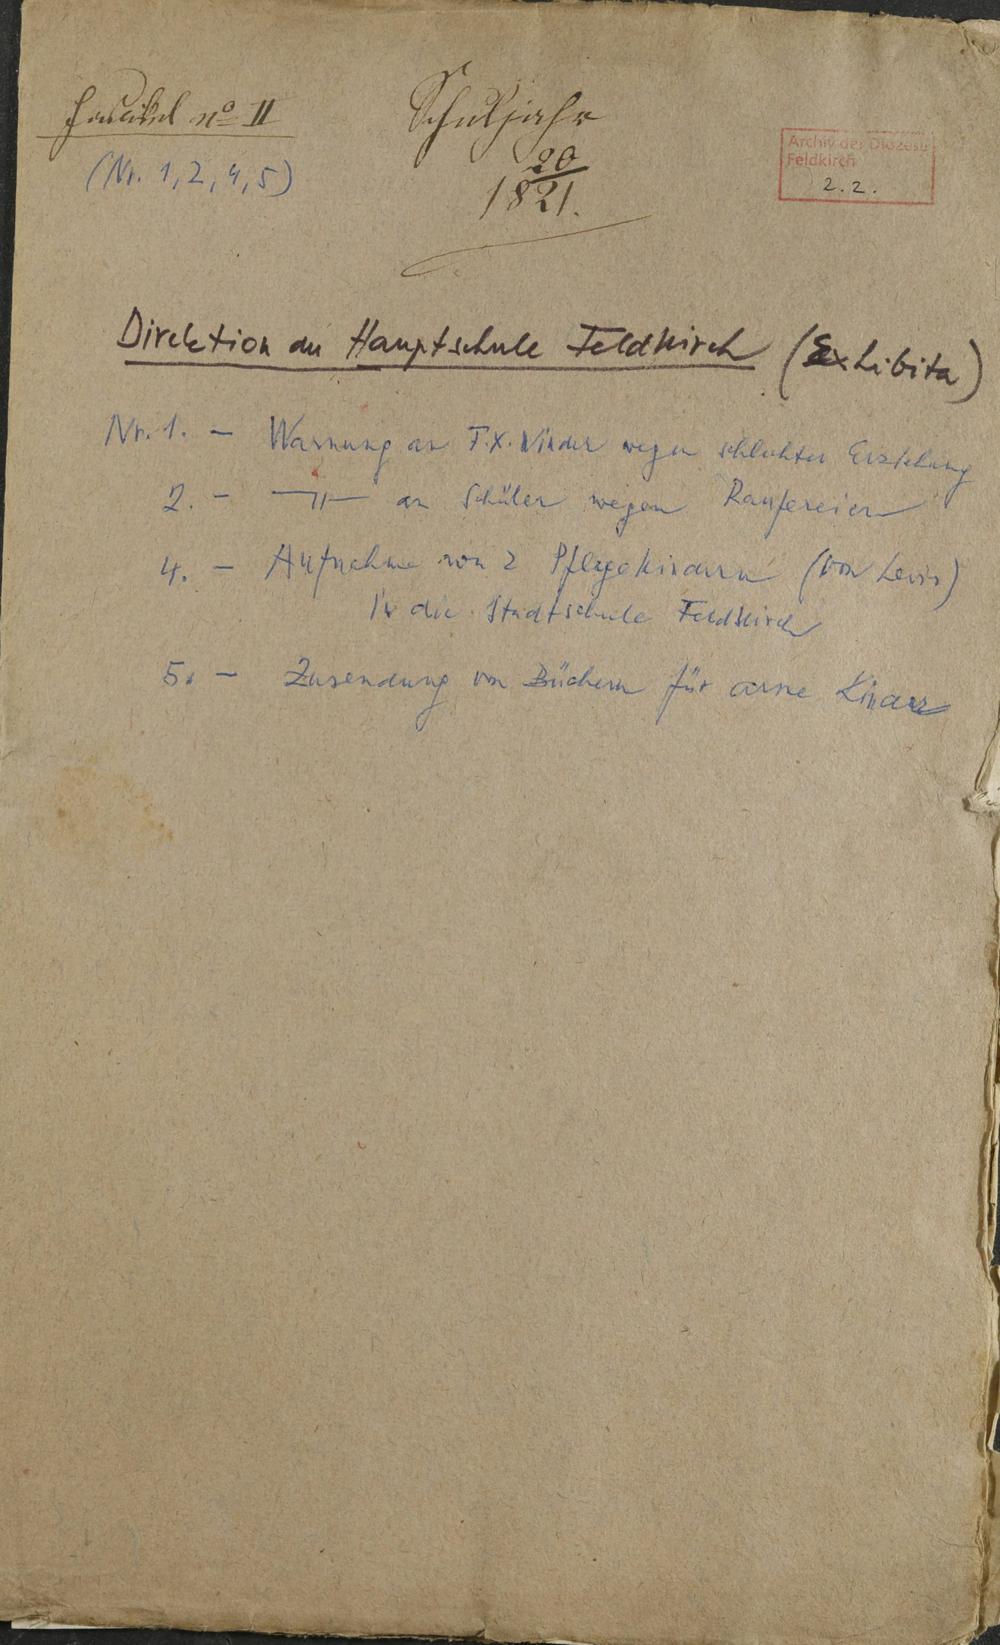 Fascikel nº II
(Nr. 1, 2, 4, 5)
Schuljahr
1820/21.
Archiv der Diözese
Feldkirch
2.2.
Direktion der Hauptschule Feldkirch (Exhibita)
Nr. 1. – Warnung an F.X. Winder wegen schlechter Erziehung
2. – —"— an Schüler wegen Raufereien
4. – Aufnahme von 2 Pflegekindern (von Levis)
in die Stadtschule Feldkirch
5. – Zusendung von Büchern für arme Kinder